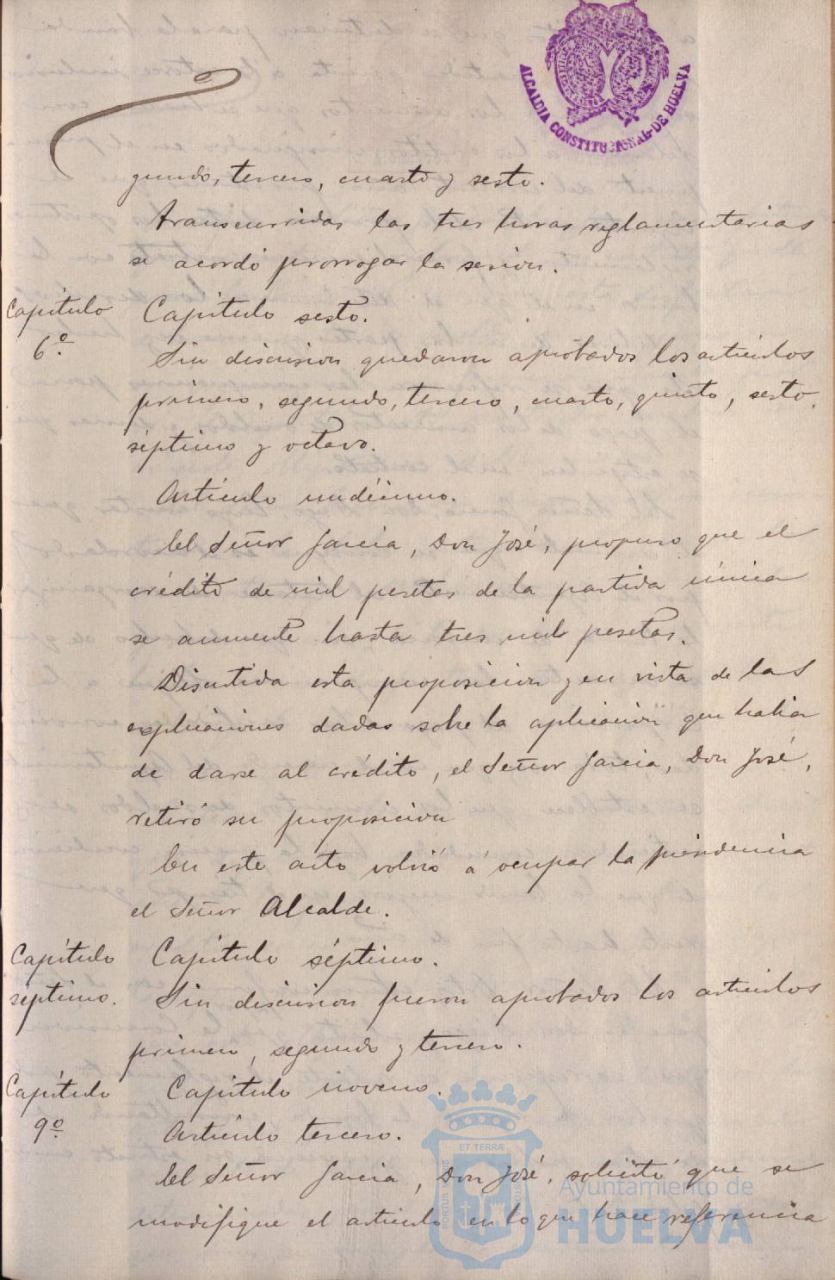 ALCALDIA CONSTITUCIONAL DE HUELVA
gundo, tercero, cuarto y sesto.
Transcurridas las tres horas reglamentarias
se acordó prorrogar la sesion.
Capítulo
6º
Capítulo sesto.
Sin discusion quedaron aprobados los artículos
primero, segundo, tercero, cuarto, quinto, sesto,
séptimo y octavo.
Artículo undécimo.
El Señor García, Don José, propuso que el
crédito de mil pesetas de la partida única
se aumente hasta tres mil pesetas.
Discutida esta proposicion y en vista de las
esplicaciones dadas sobre la aplicacion que habia
de darse al crédito, el Señor García, Don José,
retiró su proposicion
En este acto volvió á ocupar la presidencia
el Señor Alcalde.
Capítulo
séptimo.
Capítulo séptimo.
Sin discusion fueron aprobados los artículos
primero, segundo y tercero.
Capítulo
9º
Capítulo noveno.
Artículo tercero.
El Señor García, Don José, solicitó que se
modifique el artículo en lo que hace referencia
ET TERRÆ
Ayuntamiento de
HUELVA